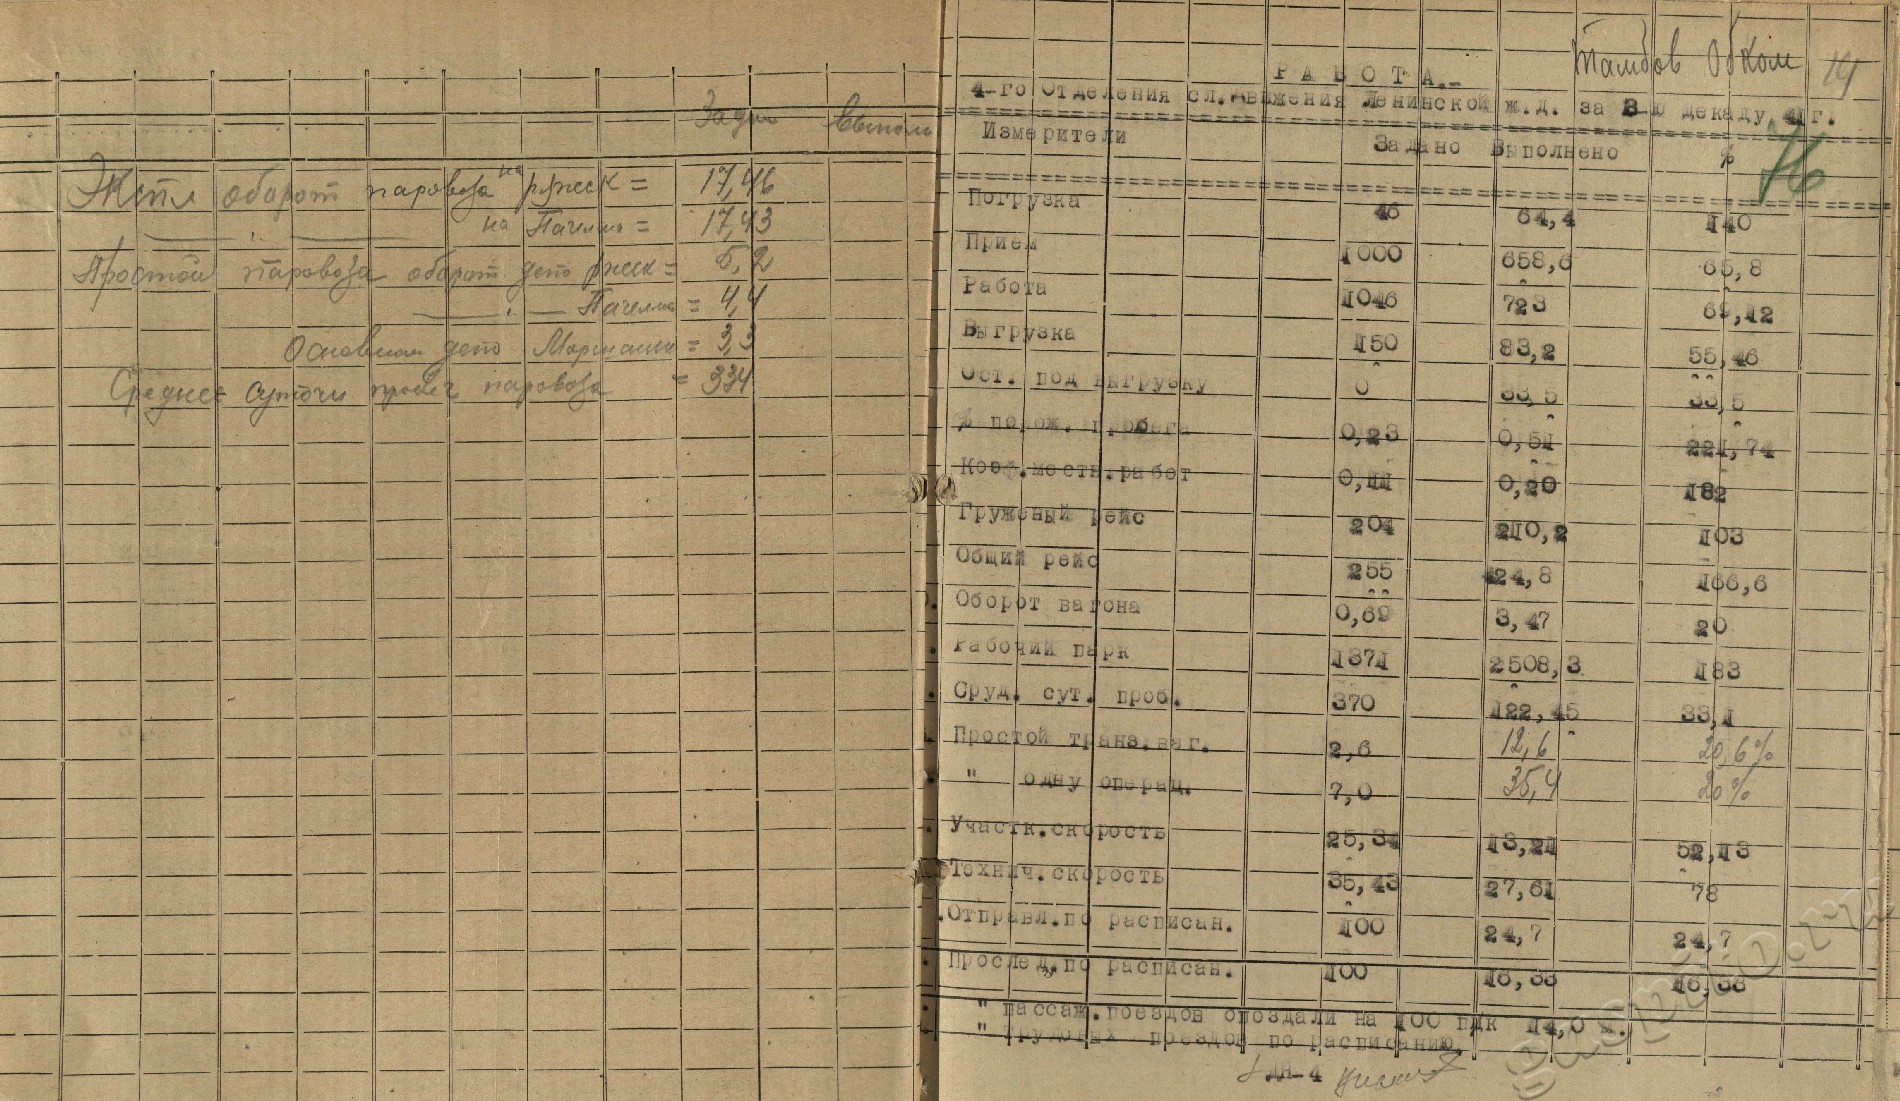 Задан Выполн
Экспл оборот паровоза на ряжск = 17,46
на Пачелма = 17,43
Простой паровоза оборот депо ряжск = 5,2
Пачелма = 4,4
Основном депо Моршанск = 3,3
Среднее суточн пробег паровоза = 334
Тамбов Обком 14
РАБОТА.-
4-го Отделения сл.движения Ленинской ж.д. за 3-ю декаду 41г.
Измерители Задано Выполнено %
76
Погрузка 46 64,4 140
Прием 1000 658,6 65,8
Работа 1046 723 69,12
Выгрузка 150 83,2 55,46
Ост. под выгрузку 0 33,5 33,5
% порож. пробега 0,23 0,51 221,74
Коэф.местн.работ 0,11 0,20 182
Груженый рейс 204 210,2 103
Общий рейс 255 424,8 166,6
Оборот вагона 0,69 3,47 20
Рабочий парк 1371 2508,3 183
Сруд. сут. проб. 370 122,45 33,1
Простой транз.ваг. 2,6 12,6 20,6%
" одну операц. 7,0 35,4 20%
Участк.скорость 25,34 13,21 52,13
Технич.скорость 35,43 27,61 78
Отправл.по расписан. 100 24,7 24,7
Прослед.по расписан. 100 16,33 16,33
" пассаж.поездов опоздали на 100 пдк 14,0 м.
" грузовых поездов по расписанию.
ДН-4